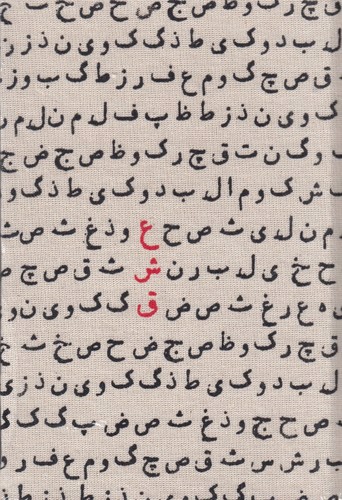 ل ب د و ک ی ط ذ گ ک و ی ن ذ ز ر
ق ص چ گ و م ع ف ر ز ط گ ب و ز
ک و ی ن ذ ز ط ظ پ ف ل م ن ل م ر
و گ ن ت ق چ ر ک و ظ ص ج ض ج
ش ک و م ا ل ب د و ک ی ط ذ گ و
م ن ل ی ث ص ح ع و ذ غ ث ص ث
ح خ ی ل ب ر ن ش ث ق ص چ ص
ه ع ر غ ث ص ض ق گ ک و ی ن و
ق چ ر ک و ظ ص ج ض ح ص خ ث
ل ب د و ک ی ط ذ گ ک و ی ن ذ ز ی
ص ح ج و ذ غ ث ص ض پ گ ک گ
ب ر ش س ث ق ص چ گ و م ع ف ر و